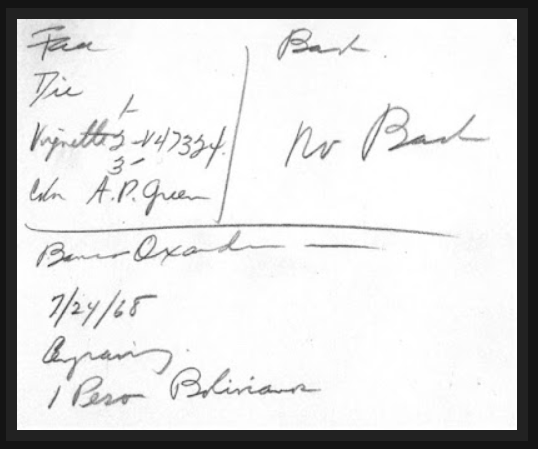 Face
Die
1-
Vignette 2-V47324
3-
Color A.P. Green
Back
No Back
Banco
7/24/68
1 Peso Boliviano